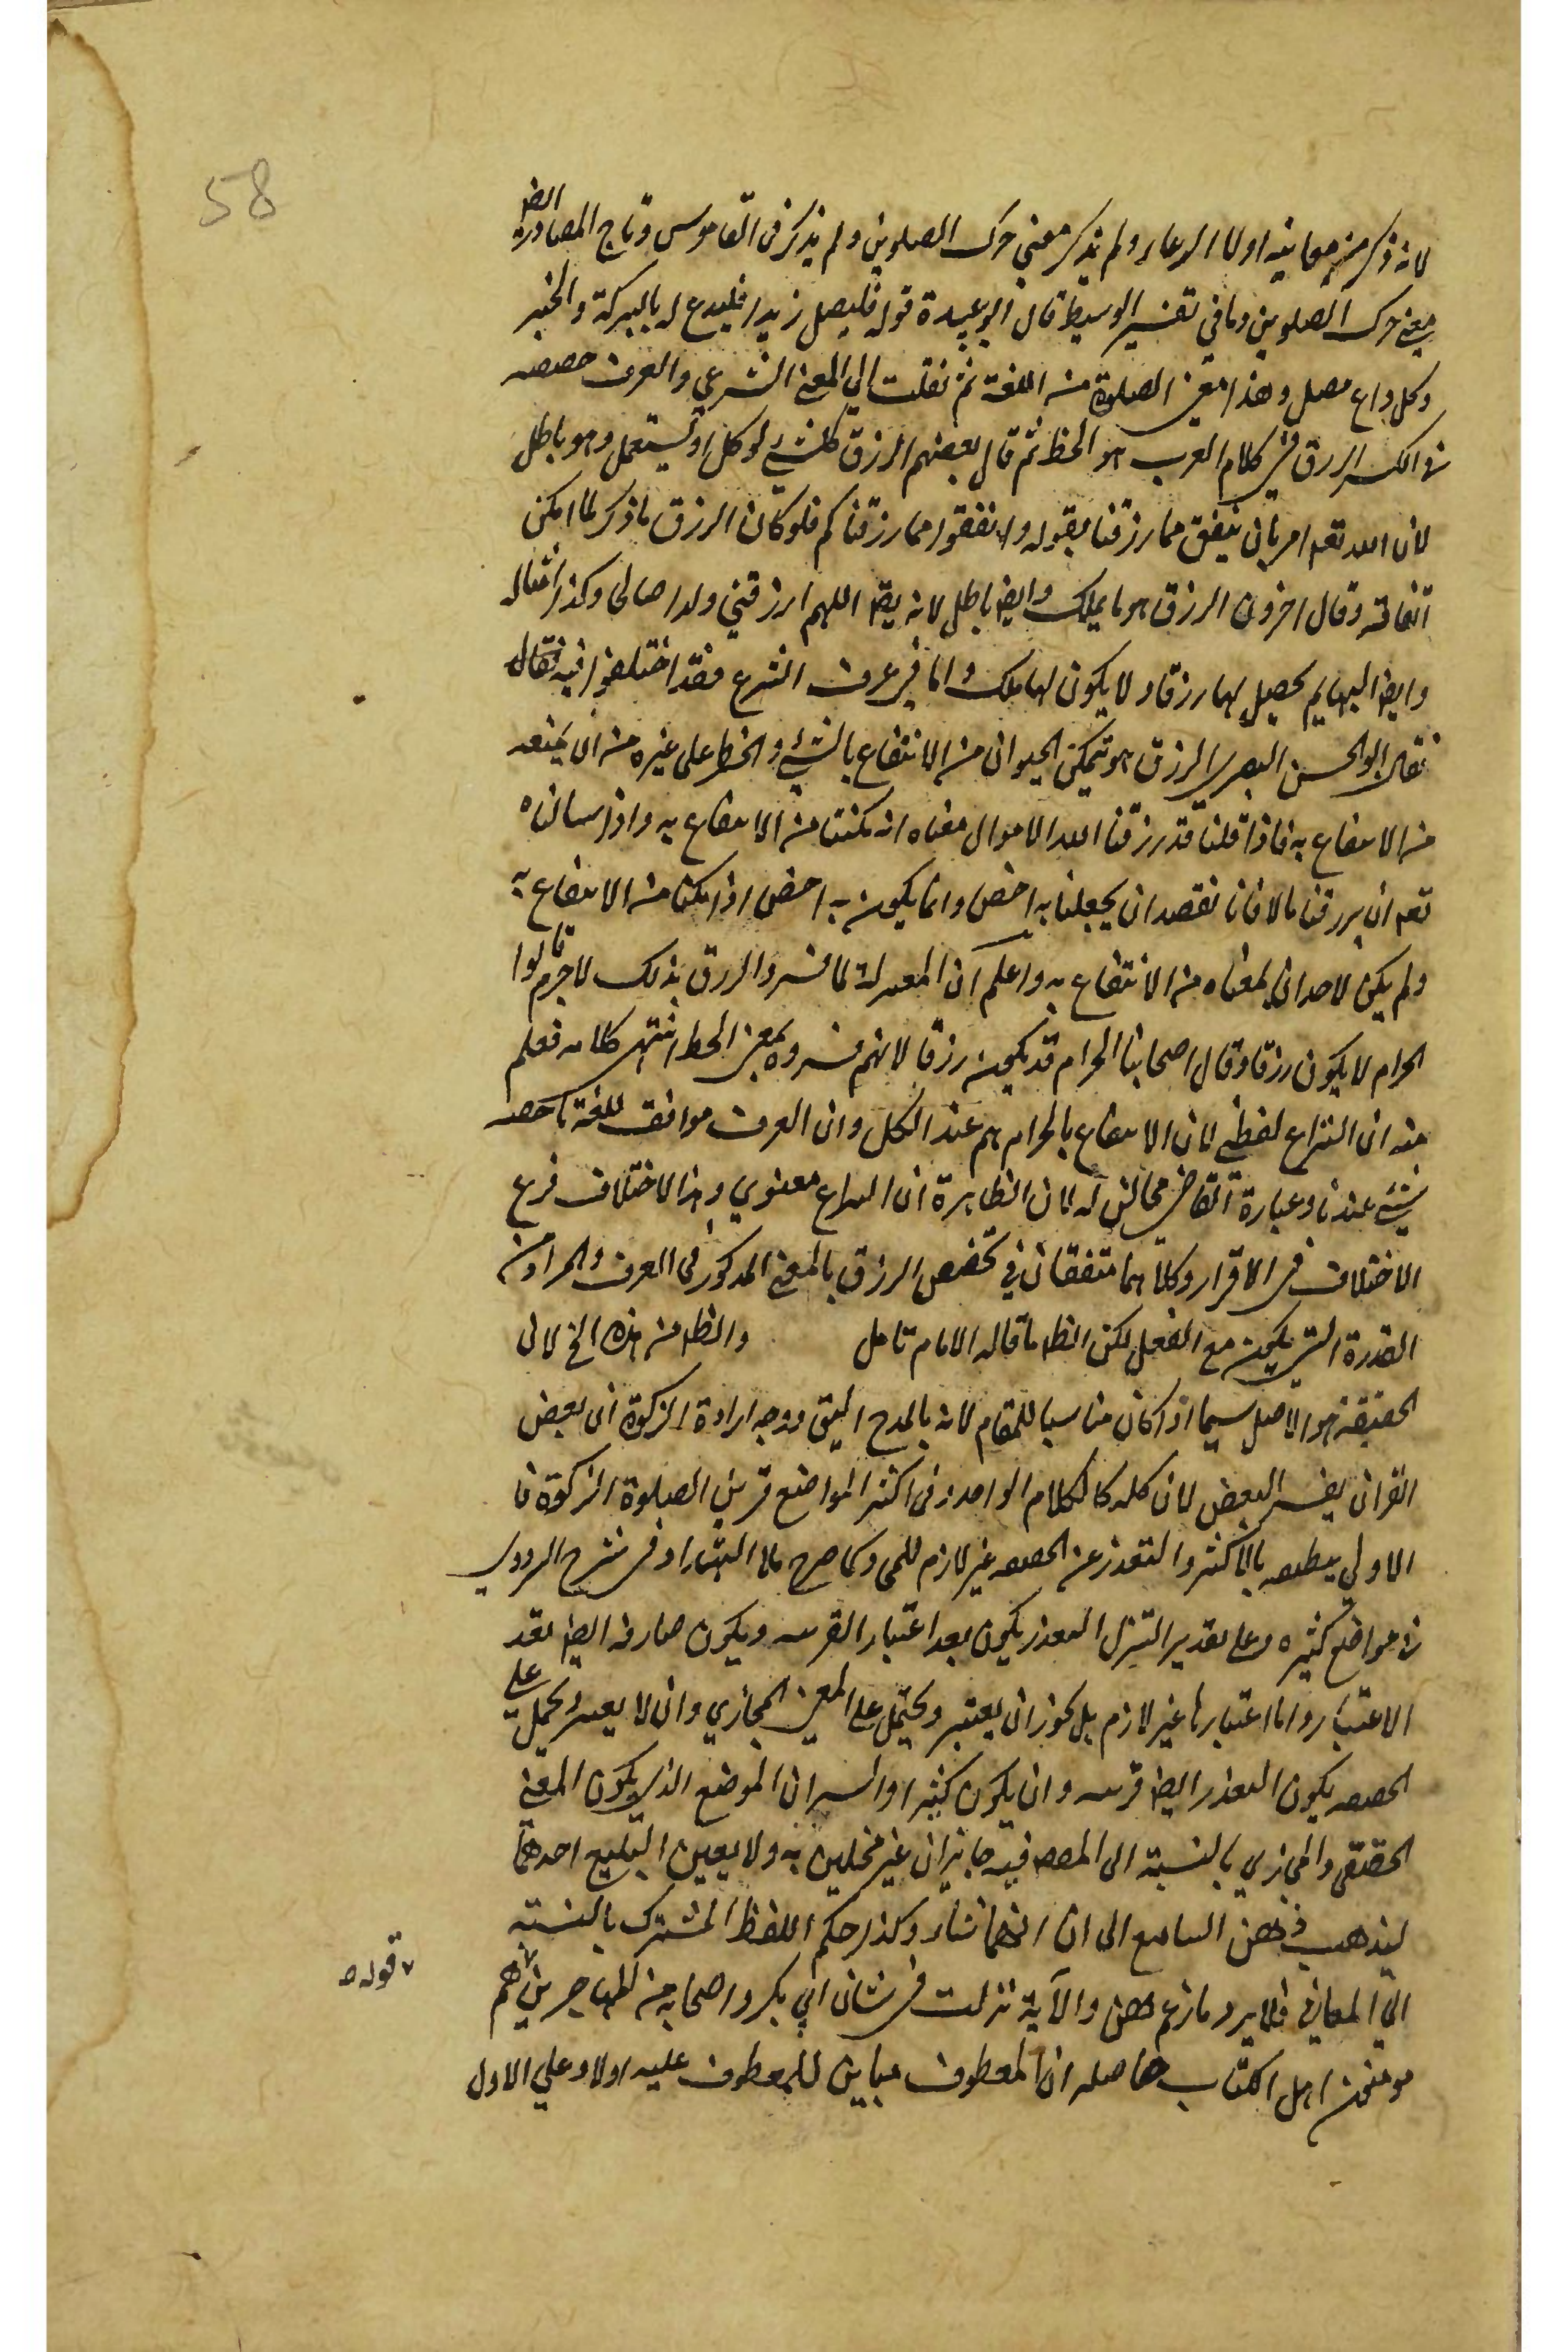 58
لانه ذكر من معانيه اولا الدعاء ولم يذكر معنى حرك الصلوين ولم يذكر في القاموس وتاج المصادر ايضا
معنى حرك الصلوين وما في تفسير الوسيط قال ابو عبيدة قوله فليصل زيدا فليدع له بالبركة والخير
وكل داع مصل وهذا معنى الصلوة من اللغة ثم نقلت الى المعنى الشرعي والعرف خصصه
الرزق في كلام العرب هو الحظ ثم قال بعضهم الرزق كل شيء يوكل او يستعمل وهو باطل
لان الله تعه امر بان ينفق مما رزقنا بقوله وانفقوا مما رزقناكم فلو كان الرزق ما ذكر لما امكن
انفاقه وقال اخرون الرزق هو ما يملك وايض باطل لانه يق اللهم ارزقني ولدا صالحا وكذا امثاله
وايض البهايم يحصل لها رزقا ولا يكون لها ملك واما في عرف الشرع فقد اختلفوا فيه فقال
فقال ابو الحسن البصري الرزق هو تمكين الحيوان من الانتفاع بالشيء والحظر على غيره من ان يمنعه
من الانتفاع به فاذا قلنا قد رزقنا الله الاموال معناه انه مكننا من الانتفاع به واذا سالناه
تعه ان يرزقنا مالا فانا نقصد ان يجعلنا به اخص وانما يكون به اخص اذا مكنا من الانتفاع به
ولم يكن لاحد ان يمنعناه من الانتفاع به واعلم ان المعتزلة لما فسروا الرزق بذلك لا جرم قالوا
الحرام لا يكون رزقا وقال اصحابنا الحرام قد يكون رزقا لانهم فسروه بمعنى الحظ انتهى كلامه فعلم
منه ان النزاع لفظي لان الانتفاع بالحرام عند الكل وان العرف موافق للغة
بشيء عندنا وعبارة القاضي مخالف له لان الظاهرة ان النزاع معنوي وهذا الاختلاف فرع
الاختلاف في الاقرار وكلاهما متفقان في تخصيص الرزق بالمعنى المذكور في العرف والمراد من
القدرة التي يكون مع الفعل لكن الظ ما قاله الامام تامل والظ من هذه الخ لان
الحقيقة هو الاصل سيما اذا كان مناسبا للمقام لانه بالمدح اليق ووجه ارادة الزكوة ان بعض
القران يفسر البعض لان كله كالكلام الواحد وفي اكثر المواضع قرين الصلوة الزكوة فا
الاولى بالاكثر والتعذر عن الحقيقة غير لازم للمجاز كما صرح في شرح
في مواضع كثيرة وعلى تقدير التنزل التعذر يكون بعد اعتبار القرينة ويكون صارفه ايض بعد
الاعتبار واما اعتبارها غير لازم بل يجوز ان يعتبر ويحتمل على المعنى المجازي وان لا يعتبر ويحمل على
الحقيقة يكون التعذر ايض قرينة وان يكون كثيرا والسر ان الموضع الذي يكون المعنى
الحقيقي والمجازي بالنسبة الى فيه جايزان غير مخلين به ولا يعين البليغ احدهما
ليذهب ذهن السامع الى ان ايهما شاء وكذا حكم اللفظ المشترك بالنسبة
الى المعاني فلا يرد ما زعم والآية نزلت في شان ابي بكر واصحابه من المهاجرين هم
قوله
مومنون اهل الكتاب حاصله ان المعطوف مباين للمعطوف عليه اولا وعلى الاول